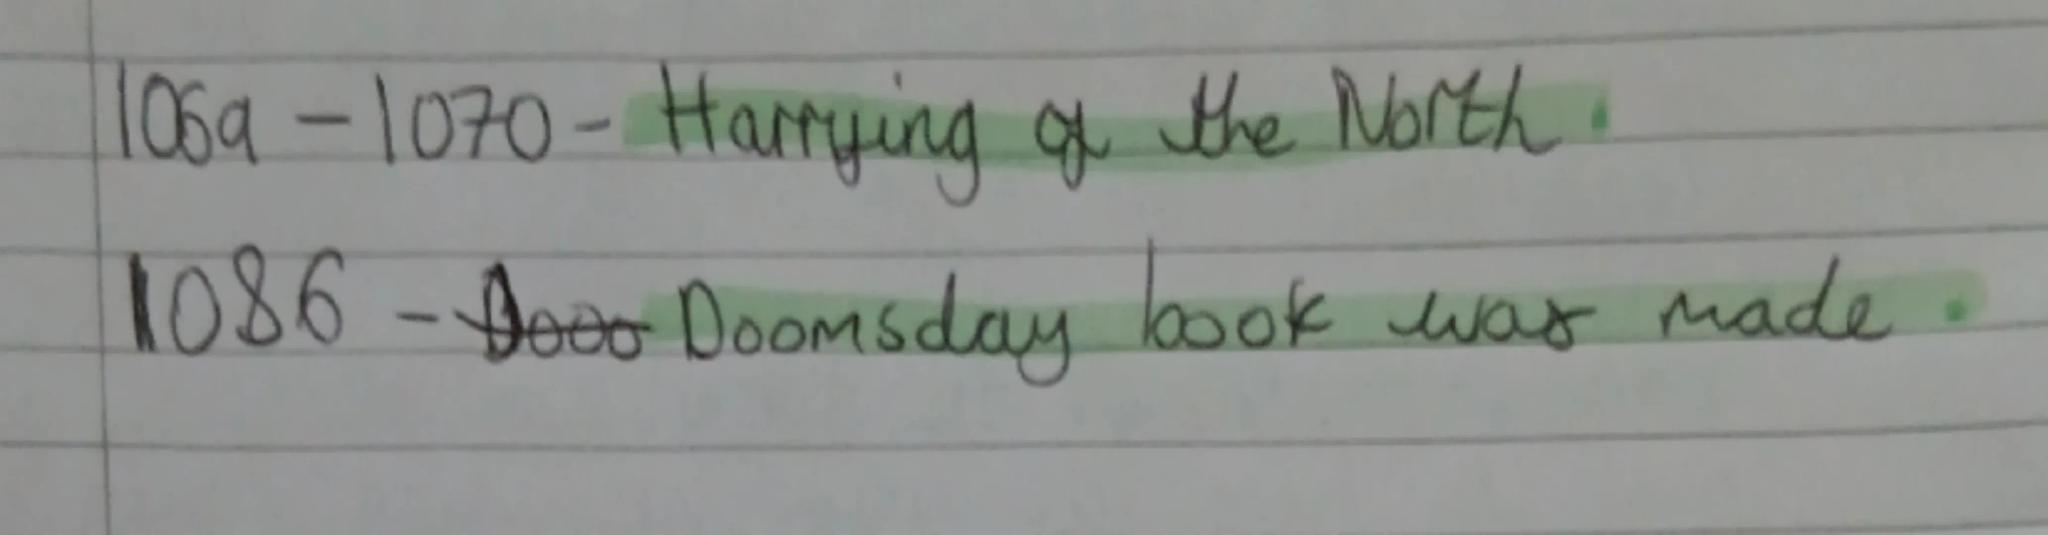 1069 - 1070 - Harrying of the North.
1086 - Doomsday book was made.